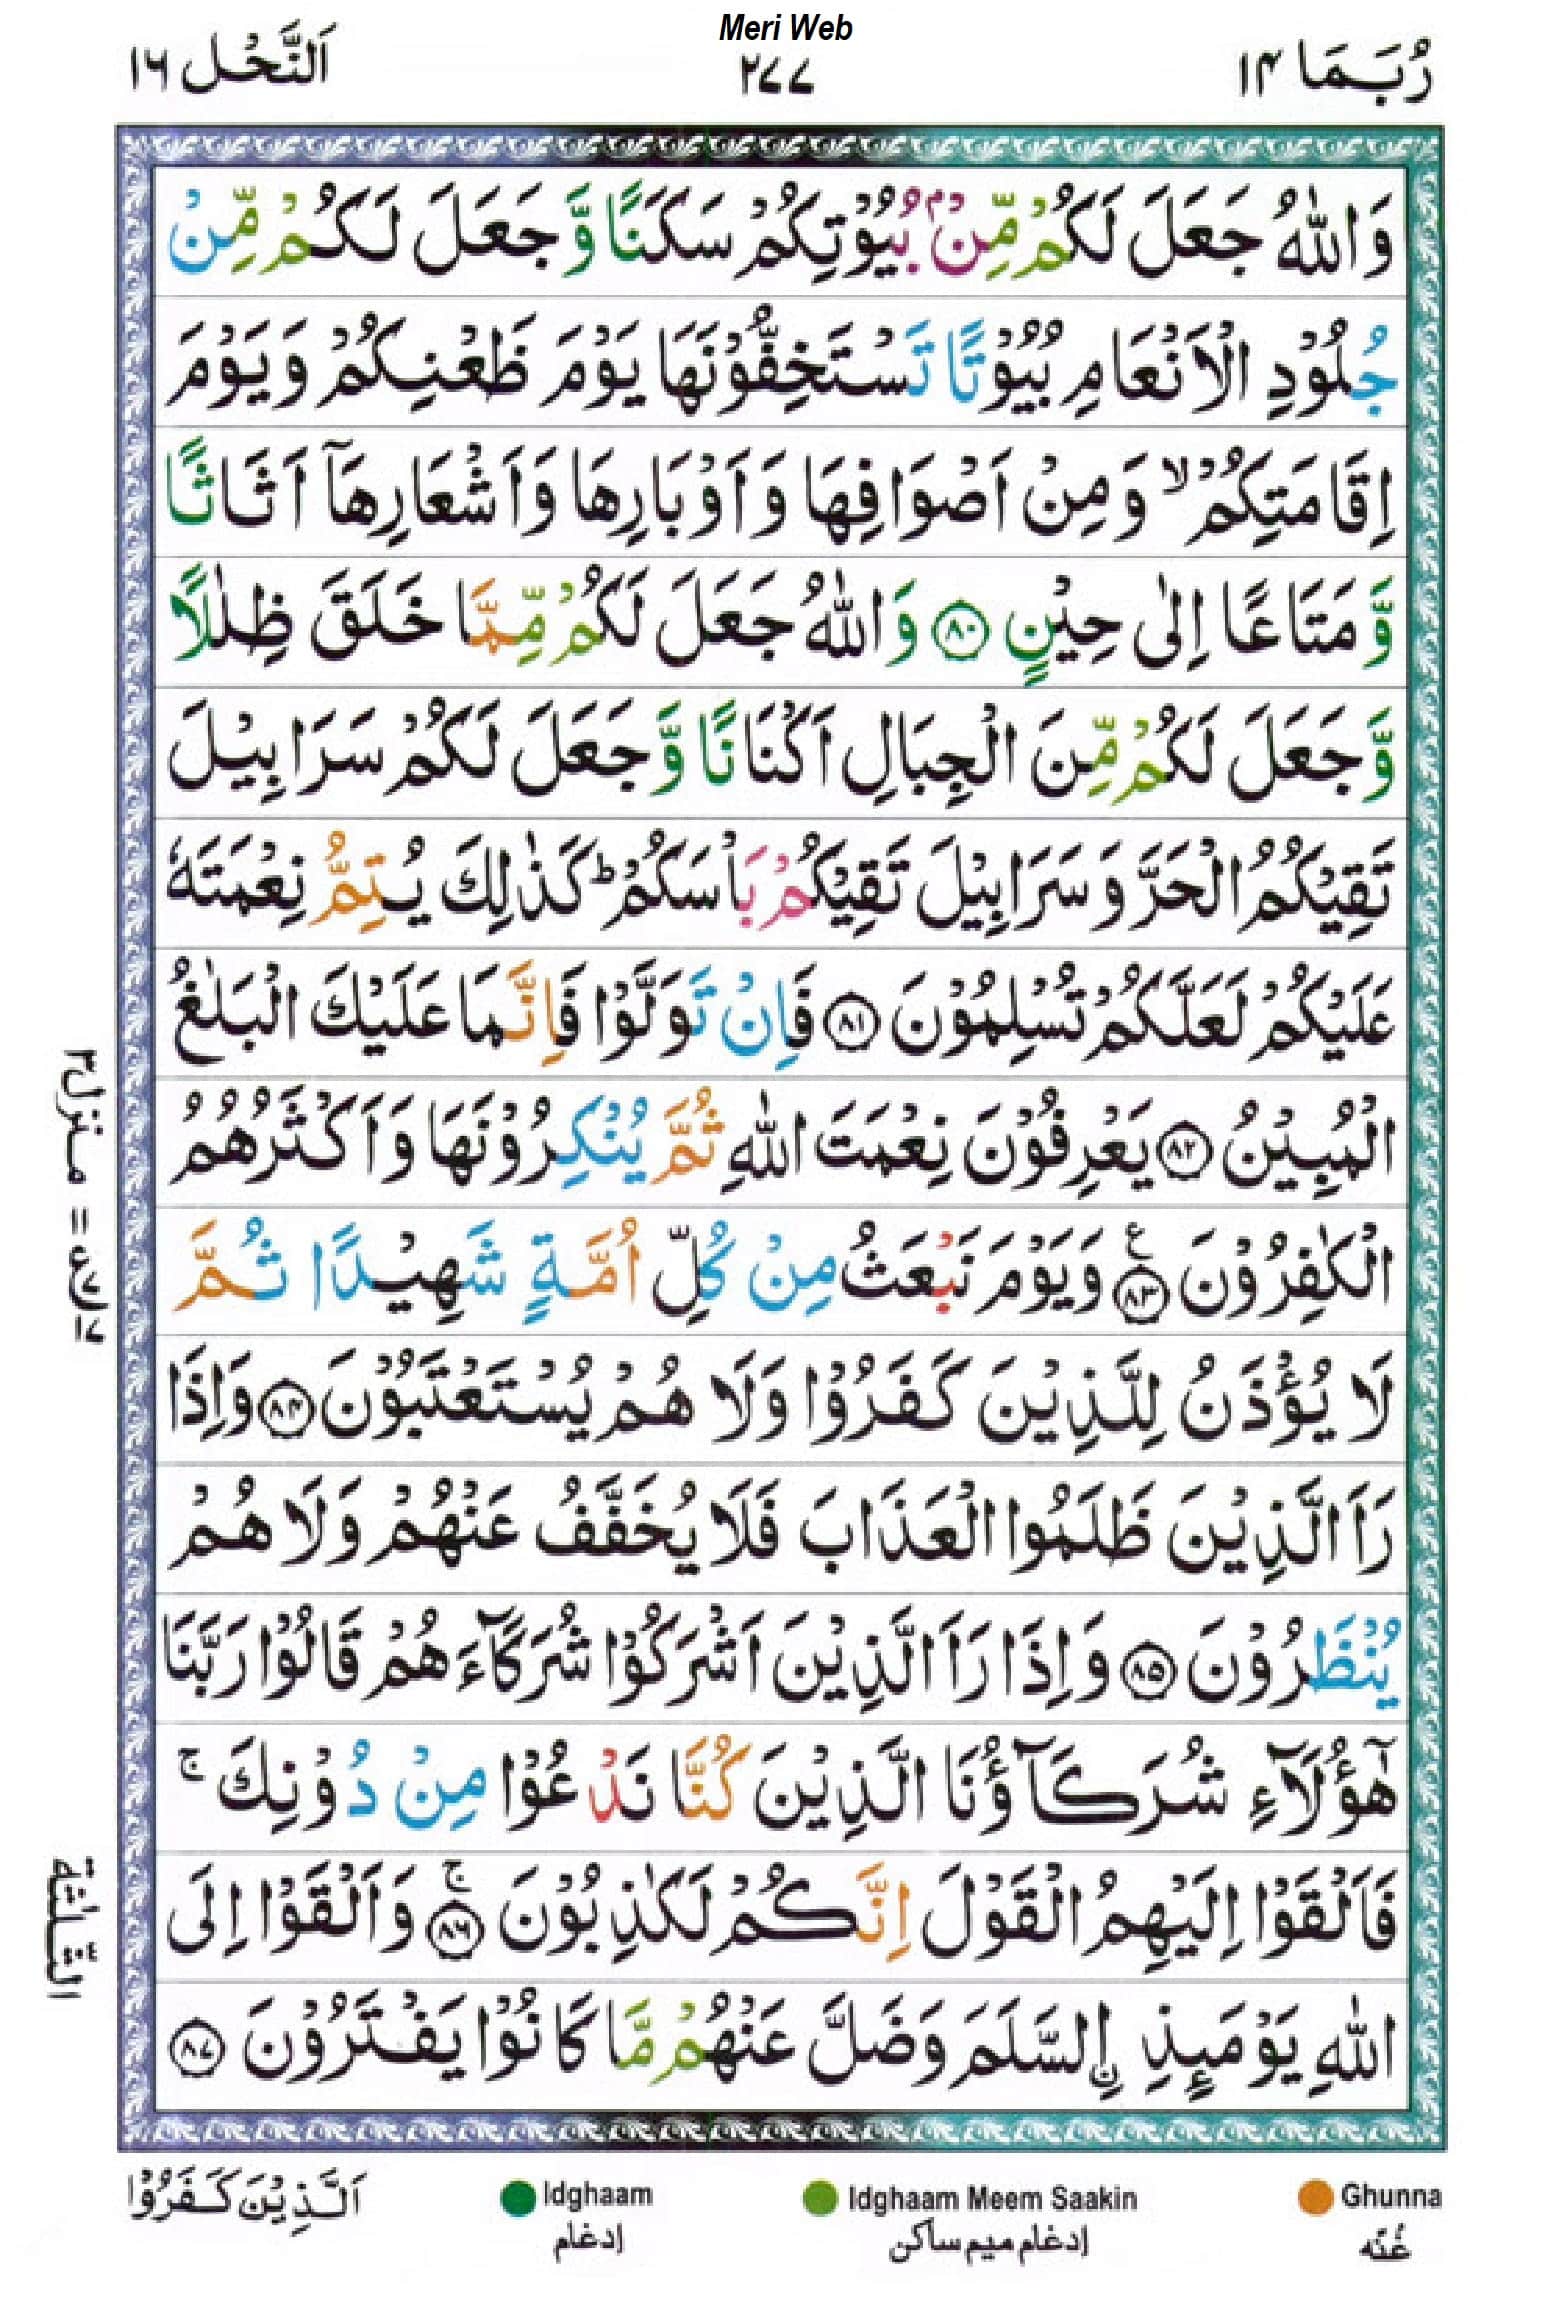 Meri Web
رُبَمَا ۱۴
۲۷۷
اَلنَّحْل ۱۶
وَاللّٰهُ جَعَلَ لَكُمْ مِّنْۢ بُيُوْتِكُمْ سَكَنًا وَّجَعَلَ لَكُمْ مِّنْ
جُلُوْدِ الْاَنْعَامِ بُيُوْتًا تَسْتَخِفُّوْنَهَا يَوْمَ ظَعْنِكُمْ وَيَوْمَ
اِقَامَتِكُمْ ۙ وَمِنْ اَصْوَافِهَا وَاَوْبَارِهَا وَاَشْعَارِهَاۤ اَثَاثًا
وَّمَتَاعًا اِلٰى حِيْنٍ ۸۰ وَاللّٰهُ جَعَلَ لَكُمْ مِّمَّا خَلَقَ ظِلٰلًا
وَّجَعَلَ لَكُمْ مِّنَ الْجِبَالِ اَكْنَانًا وَّجَعَلَ لَكُمْ سَرَابِيْلَ
تَقِيْكُمُ الْحَرَّ وَسَرَابِيْلَ تَقِيْكُمْ بَاْسَكُمْ ؕ كَذٰلِكَ يُتِمُّ نِعْمَتَهٗ
عَلَيْكُمْ لَعَلَّكُمْ تُسْلِمُوْنَ ۸۱ فَاِنْ تَوَلَّوْا فَاِنَّمَا عَلَيْكَ الْبَلٰغُ
الْمُبِيْنُ ۸۲ يَعْرِفُوْنَ نِعْمَتَ اللّٰهِ ثُمَّ يُنْكِرُوْنَهَا وَاَكْثَرُهُمُ
الْكٰفِرُوْنَ ۸۳ ع وَيَوْمَ نَبْعَثُ مِنْ كُلِّ اُمَّةٍ شَهِيْدًا ثُمَّ
لَا يُؤْذَنُ لِلَّذِيْنَ كَفَرُوْا وَلَا هُمْ يُسْتَعْتَبُوْنَ ۸۴ وَاِذَا
رَاَ الَّذِيْنَ ظَلَمُوا الْعَذَابَ فَلَا يُخَفَّفُ عَنْهُمْ وَلَا هُمْ
يُنْظَرُوْنَ ۸۵ وَاِذَا رَاَ الَّذِيْنَ اَشْرَكُوْا شُرَكَآءَهُمْ قَالُوْا رَبَّنَا
هٰٓؤُلَآءِ شُرَكَآؤُنَا الَّذِيْنَ كُنَّا نَدْعُوْا مِنْ دُوْنِكَ ۚ
فَاَلْقَوْا اِلَيْهِمُ الْقَوْلَ اِنَّكُمْ لَكٰذِبُوْنَ ۸۶ ۚ وَاَلْقَوْا اِلَى
اللّٰهِ يَوْمَىِٕذِ ۟السَّلَمَ وَضَلَّ عَنْهُمْ مَّا كَانُوْا يَفْتَرُوْنَ ۸۷
منزل۳
الثلثة
Ghunna
غُنّه
Idghaam Meem Saakin
إدغام ميم ساكن
Idghaam
إدغام
اَلَّذِيْنَ كَفَرُوْا